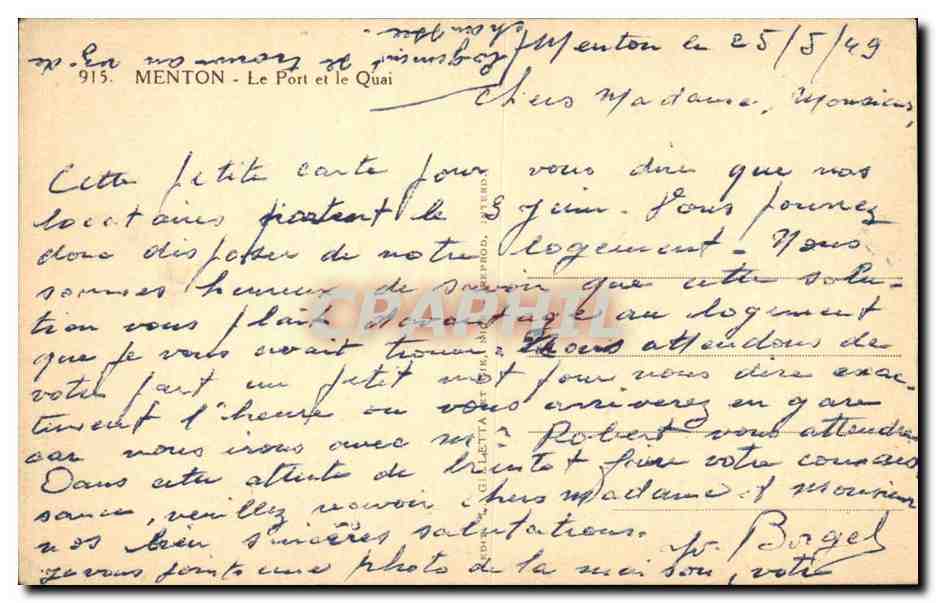 Menton le 25/5/49
915. MENTON - Le Port et le Quai
Chers Madame, Monsieur,
Cette petite carte pour vous dire que nos
locataires partent le 3 Juin. Vous pouvez
donc disposer de notre logement. Nous
sommes heureux de savoir que cette solu-
tion vous plait davantage au logement
que je vous avait trouver. Nous attendons de
votre part un petit mot pour nous dire exac-
tement l'heure ou vous arriverez en gare
car nous irons avec Robert vous attendre
Dans cette attente de bientot faire votre connais
sance, veuillez recevoir chers Madame et Monsieur
nos bien sincères salutations.
Borgel
je vous joints une photo de la maison, votre
logement se trouve au
CPARPHIL
EDITION GILLETTA REPROD. INTERD.